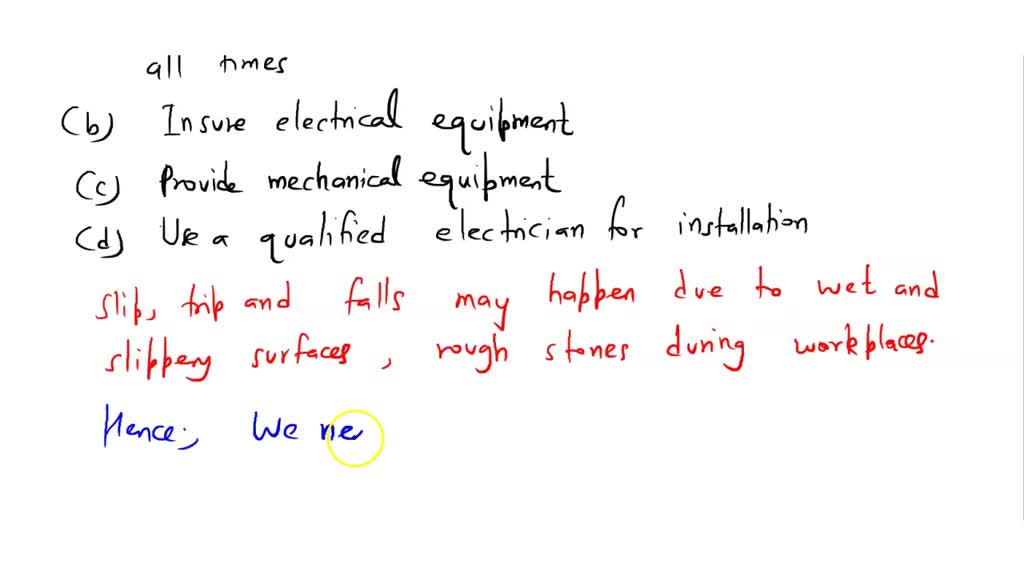 all times
(b) Insure electrical equipment
(c) Provide mechanical equipment
(d) Use a qualified electrician for installation
slip, trip and falls may happen due to wet and
slippery surfaces, rough stones during workplaces.
Hence; We ne